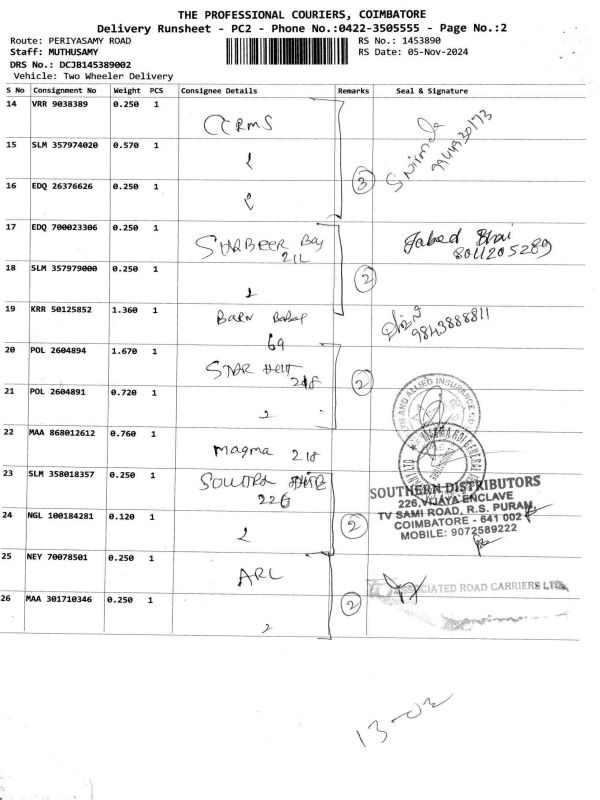 THE PROFESSIONAL COURIERS, COIMBATORE
Delivery Runsheet - PC2 - Phone No.:0422-3505555 - Page No.:2
Route: PERIYASAMY ROAD
RS No.: 1453890
Staff: MUTHUSAMY
RS Date: 05-Nov-2024
DRS No.: DCJB145389002
Vehicle: Two Wheeler Delivery
S No Consignment No Weight PCS Consignee Details Remarks Seal & Signature
14 VRR 9038389 0.250 1
CCRMS
15 SLM 357974020 0.570 1
9944930173
16 EDQ 26376626 0.250 1
3
17 EDQ 700023306 0.250 1
211
Jabed Bhai
8011205289
18 SLM 357979000 0.250 1
2
19 KRR 50125852 1.360 1
69
9843888811
20 POL 2604894 1.670 1
STAR 218
2
21 POL 2604891 0.720 1
2
AND ALLIED INSURANCE CO
22 MAA 868012612 0.760 1
Magma 218
GENERAL
23 SLM 358018357 0.250 1
226
SOUTHERN DISTRIBUTORS
226, VIJAYA ENCLAVE
TV SAMI ROAD, R.S. PURAM,
COIMBATORE - 641 002
MOBILE: 9072589222
24 NGL 100184281 0.120 1
2
2
25 NEY 70078501 0.250 1
ARC
ASSOCIATED ROAD CARRIERS LTD.,
26 MAA 301710346 0.250 1
2
2
13-02